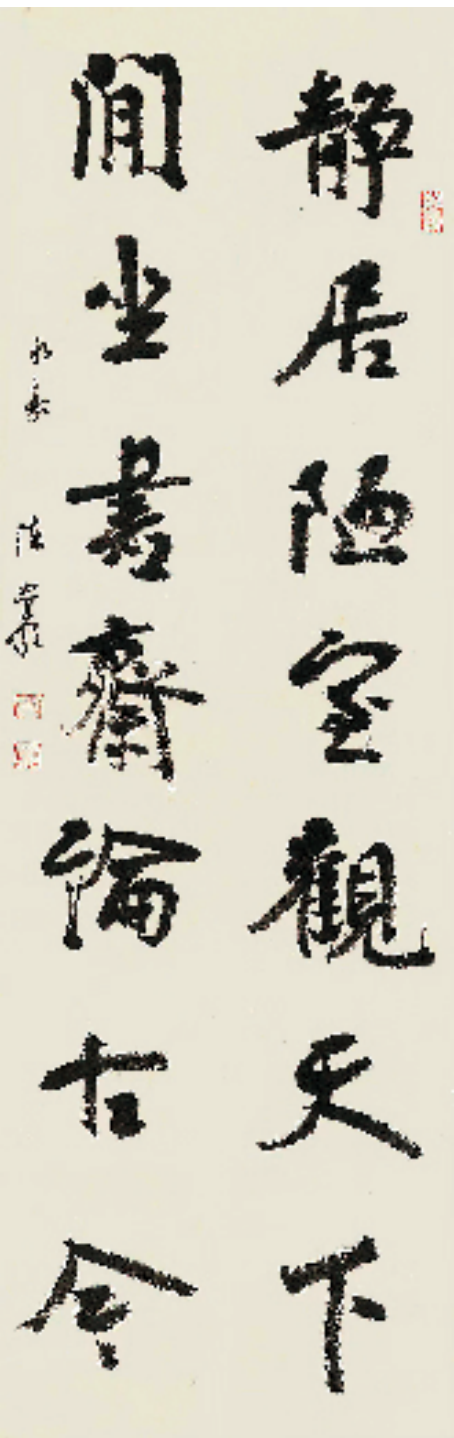 静居陋室觀天下
閒坐書齋論古今